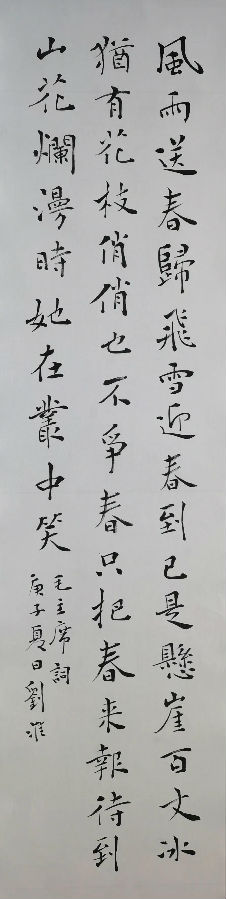 風雨送春歸飛雪迎春到已是懸崖百丈冰
猶有花枝俏俏也不爭春只把春来報待到
山花爛漫時她在叢中笑
毛主席詞
庚子夏日劉淮